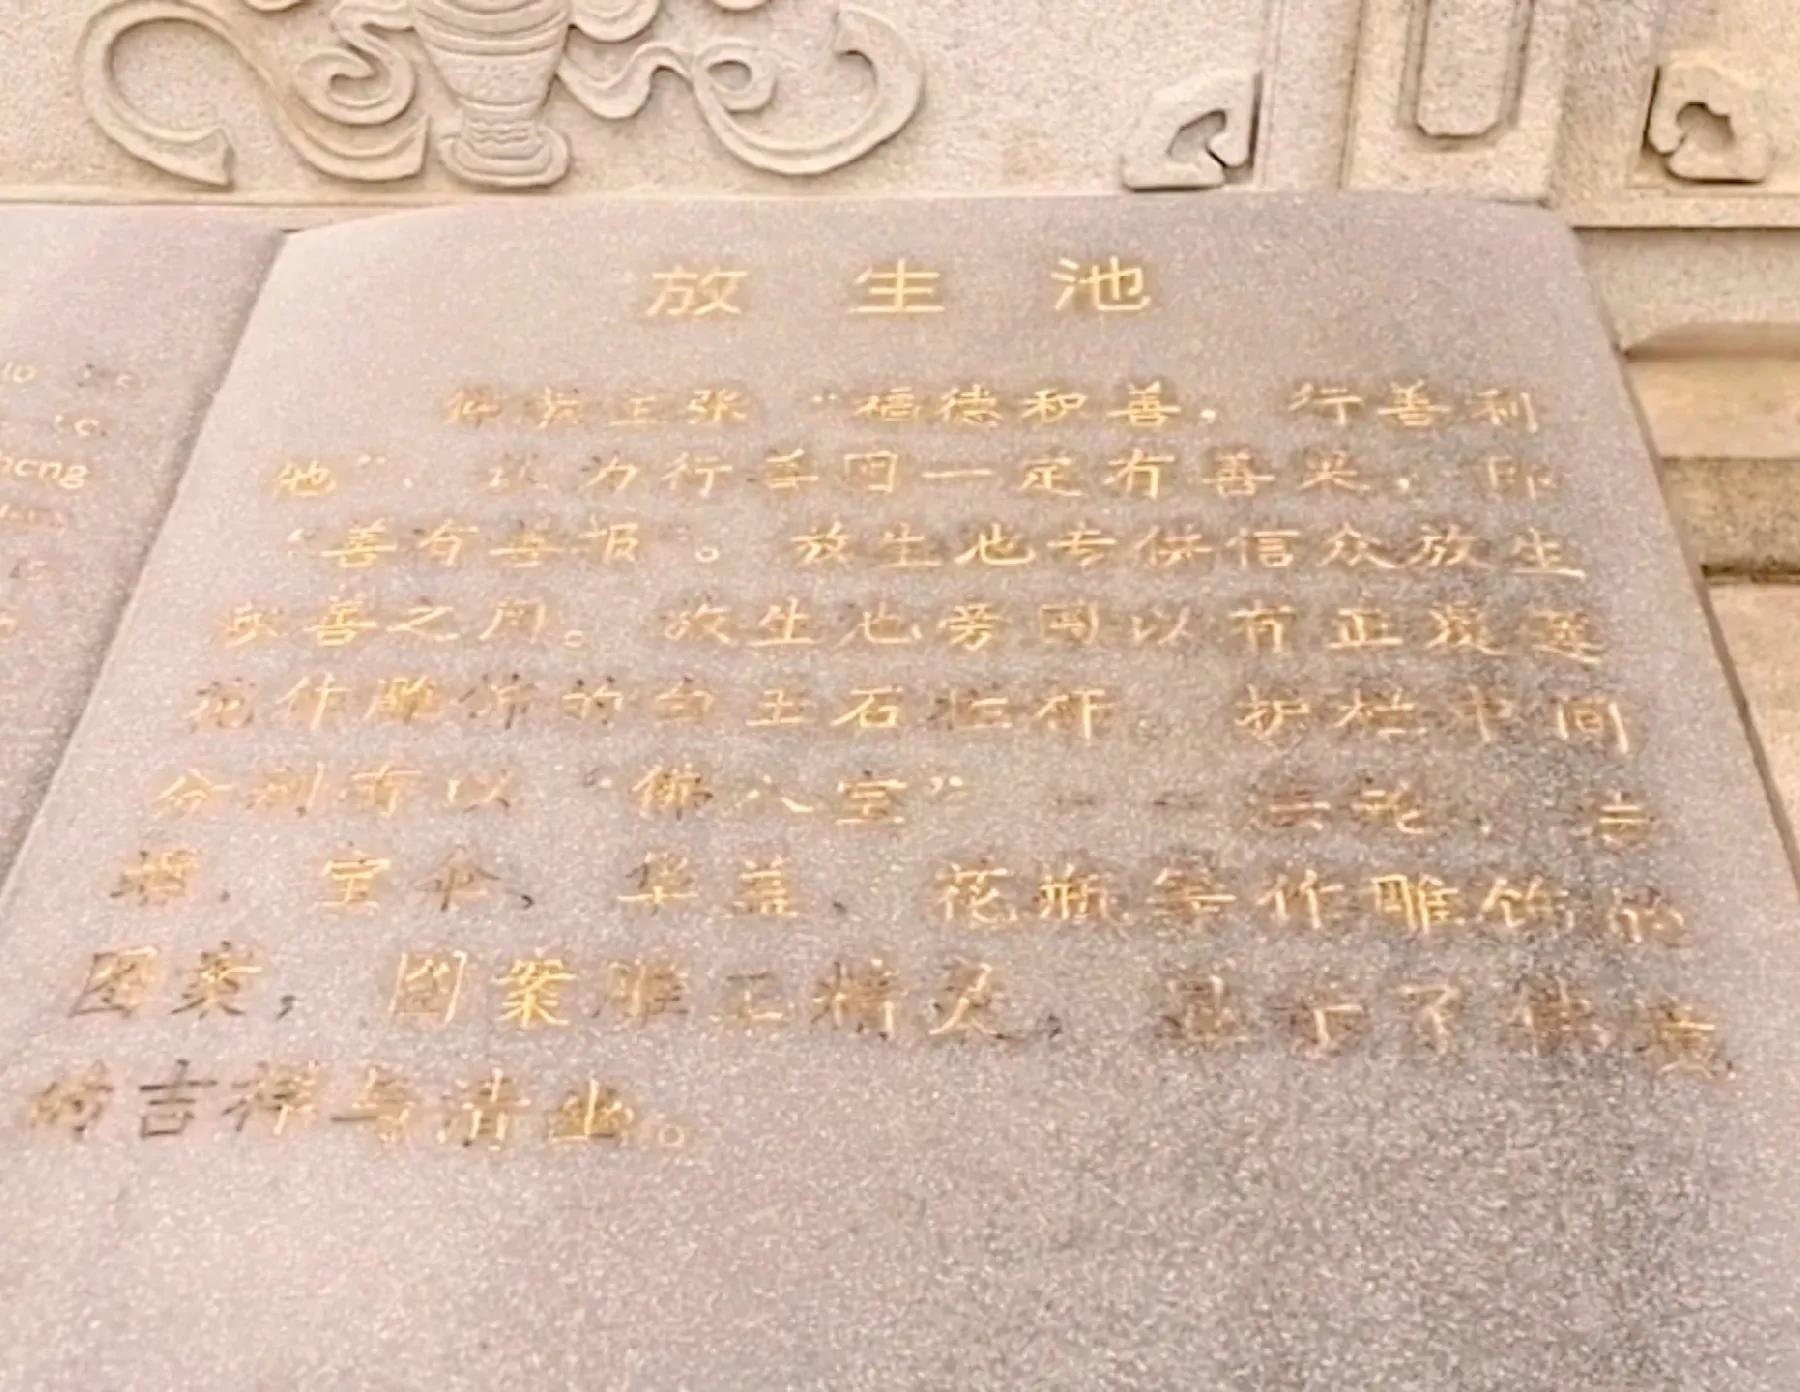 放生池
佛教主张“福德和善，行善利
他”，认为行善因一定有善果，即
“善有善报”。放生池专供信众放生
积善之用。放生池旁围以有正莲
花作雕饰的白玉石栏杆，护栏中间
分别有以“佛八宝”——法轮、吉
、宝伞、华盖、花瓶等作雕饰的
图案，图案雕工精美，显示了佛教
的吉祥与清幽。
heng